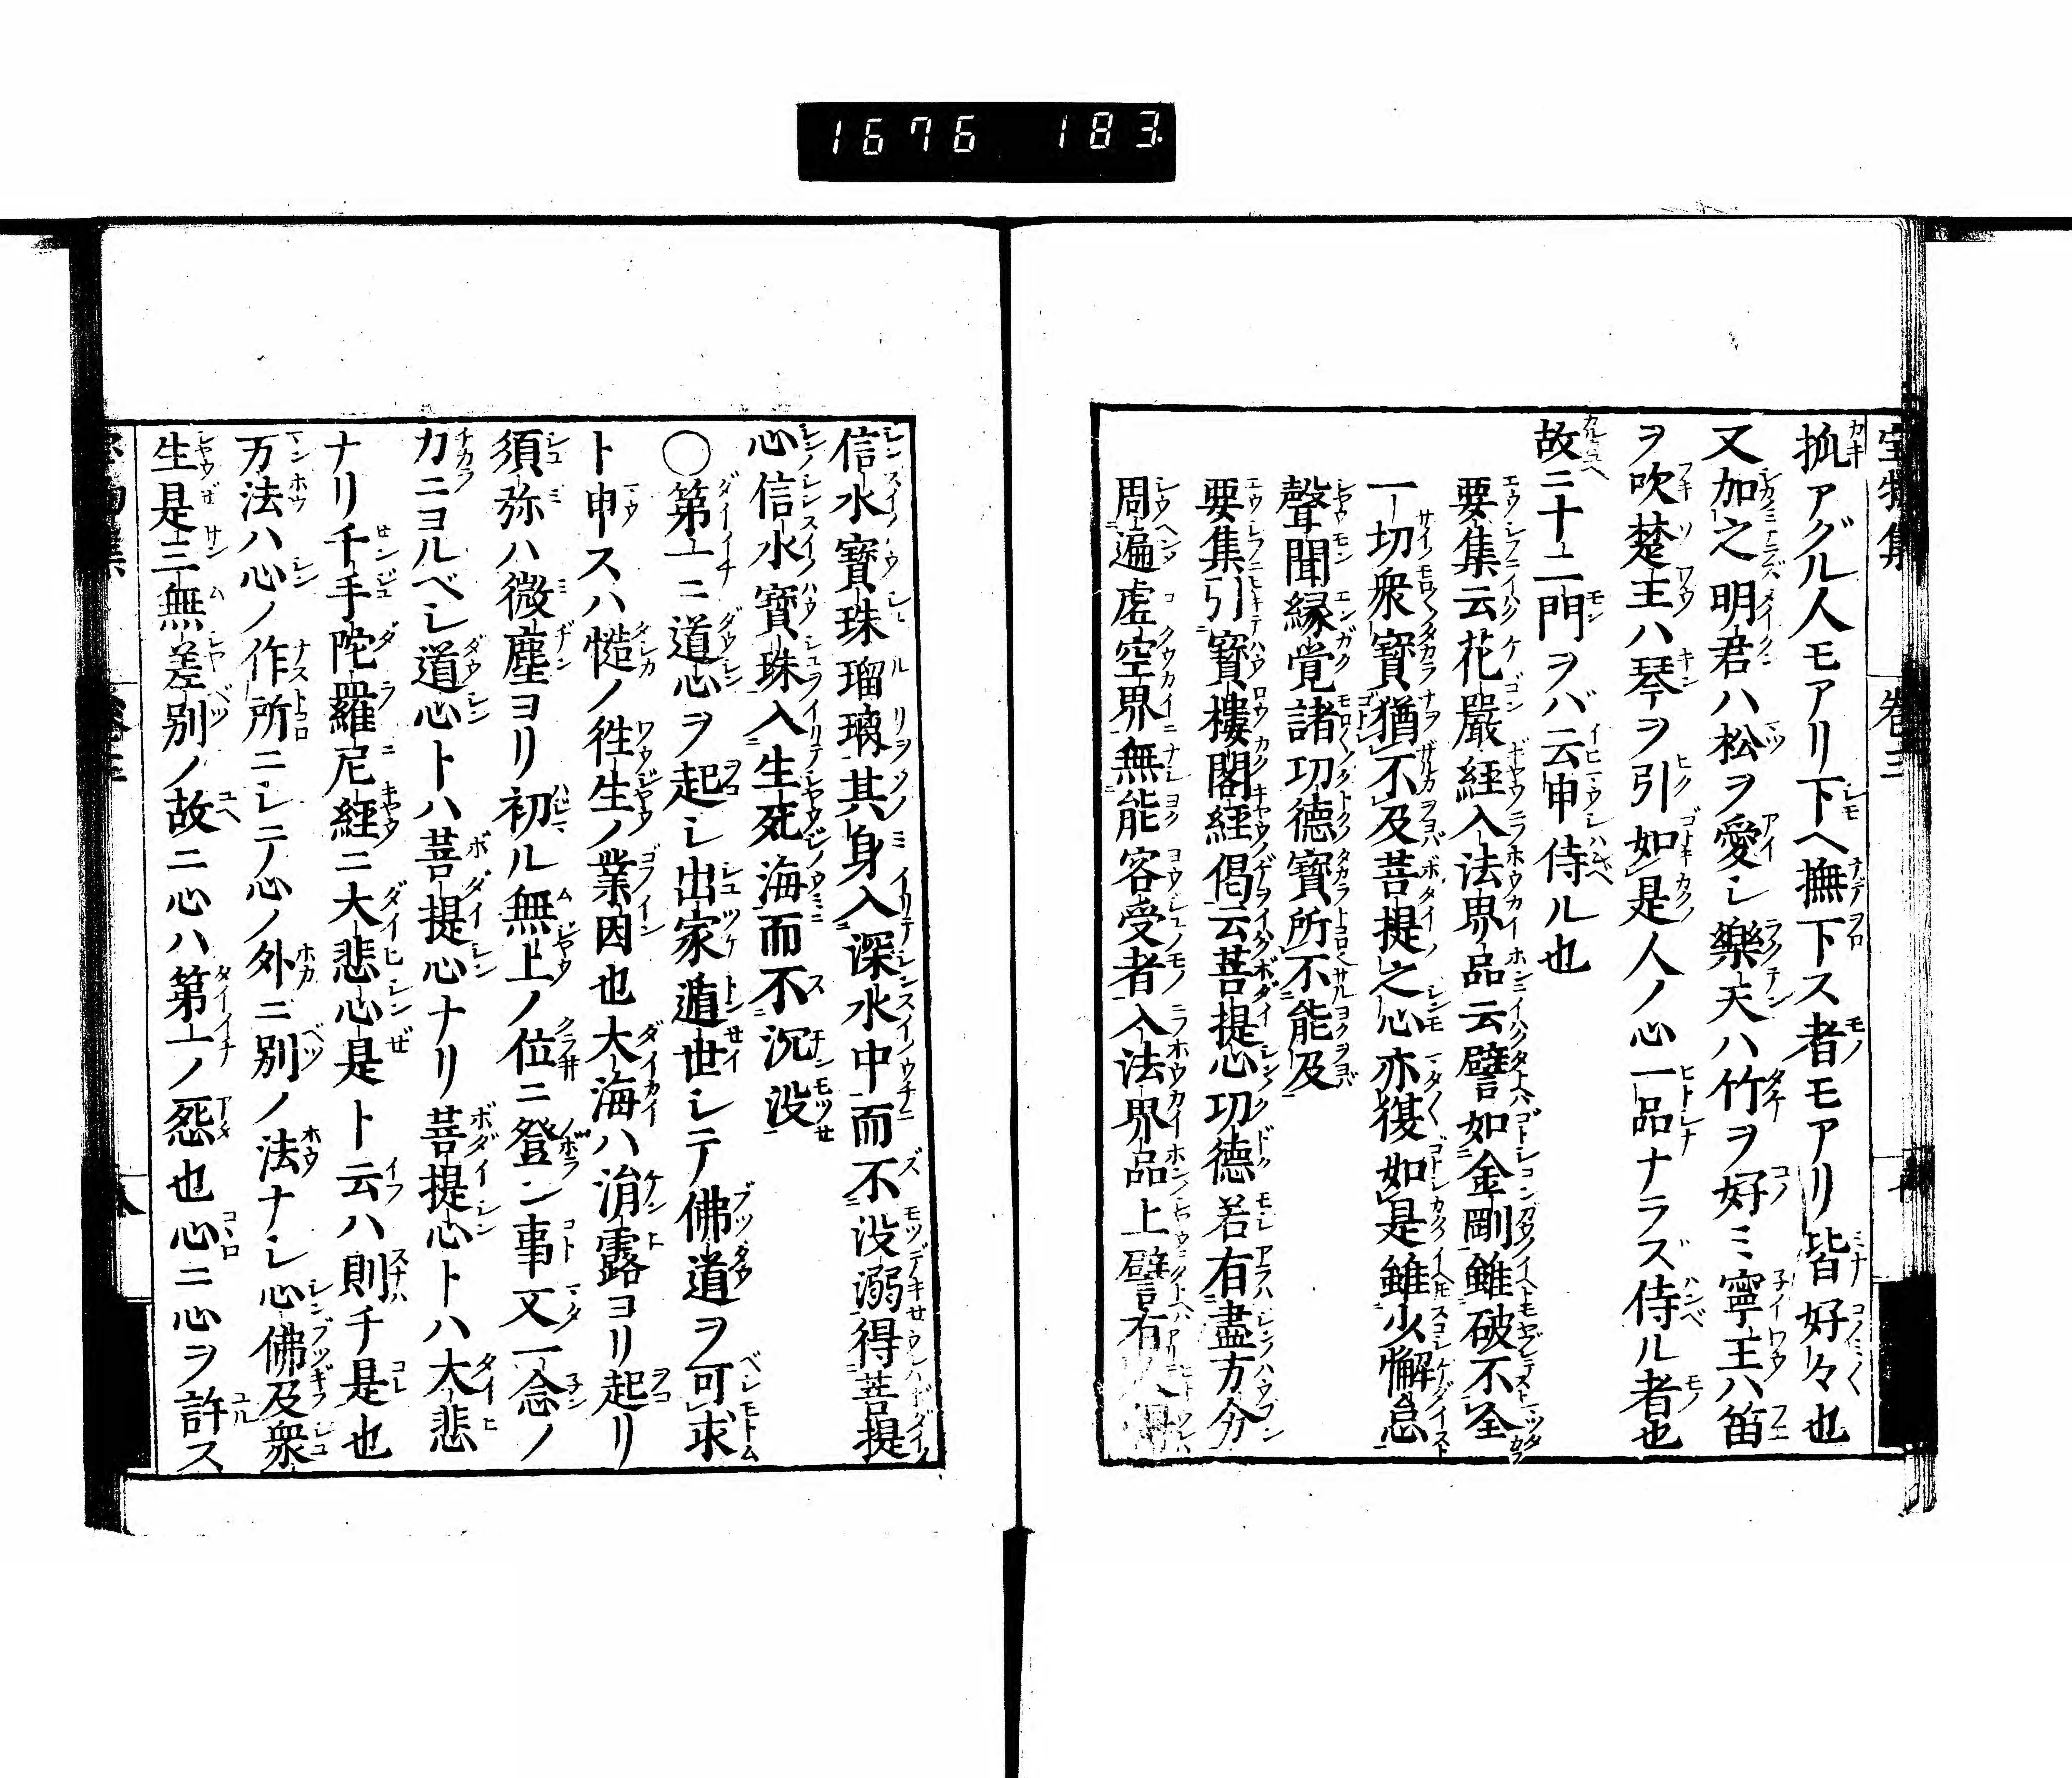 1676 183
抓アグル人モアリ下ヘ撫下ス者モアリ皆好々也
又加之明君ハ松ヲ愛シ樂天ハ竹ヲ好ミ寧王ハ笛
ヲ吹楚王ハ琴ヲ引如是人ノ心一品ナラズ侍ル者也
故ニ十二門ヲバ云申侍ル也
要集云花嚴経入法界品云譬如金剛雖破不全
一切衆寶猶不及菩提之心亦復如是雖少懈怠
聲聞縁覚諸功德寶所不能及
要集引寶樓閣経偈云菩提心功德若有盡方分
周遍虚空界無能容受者入法界品上譬有
信水寶珠瑠璃其身入深水中而不没溺得菩提
心信水寶珠入生死海而不沉没
〇第一ニ道心ヲ起シ出家遁世シテ佛道ヲ可求
ト申スハ慥ノ徃生ノ業因也大海ハ涓露ヨリ起リ
須弥ハ微塵ヨリ初ル無上ノ位ニ登ン事又一念ノ
力ニヨルベシ道心トハ菩提心ナリ菩提心トハ大悲
ナリ千手陀羅尼経ニ大悲心是ト云ハ則千是也
万法ハ心ノ作所ニシテ心ノ外ニ別ノ法ナシ心佛及衆
生是三無差別ノ故ニ心ハ第一ノ怨也心ニ心ヲ許ス